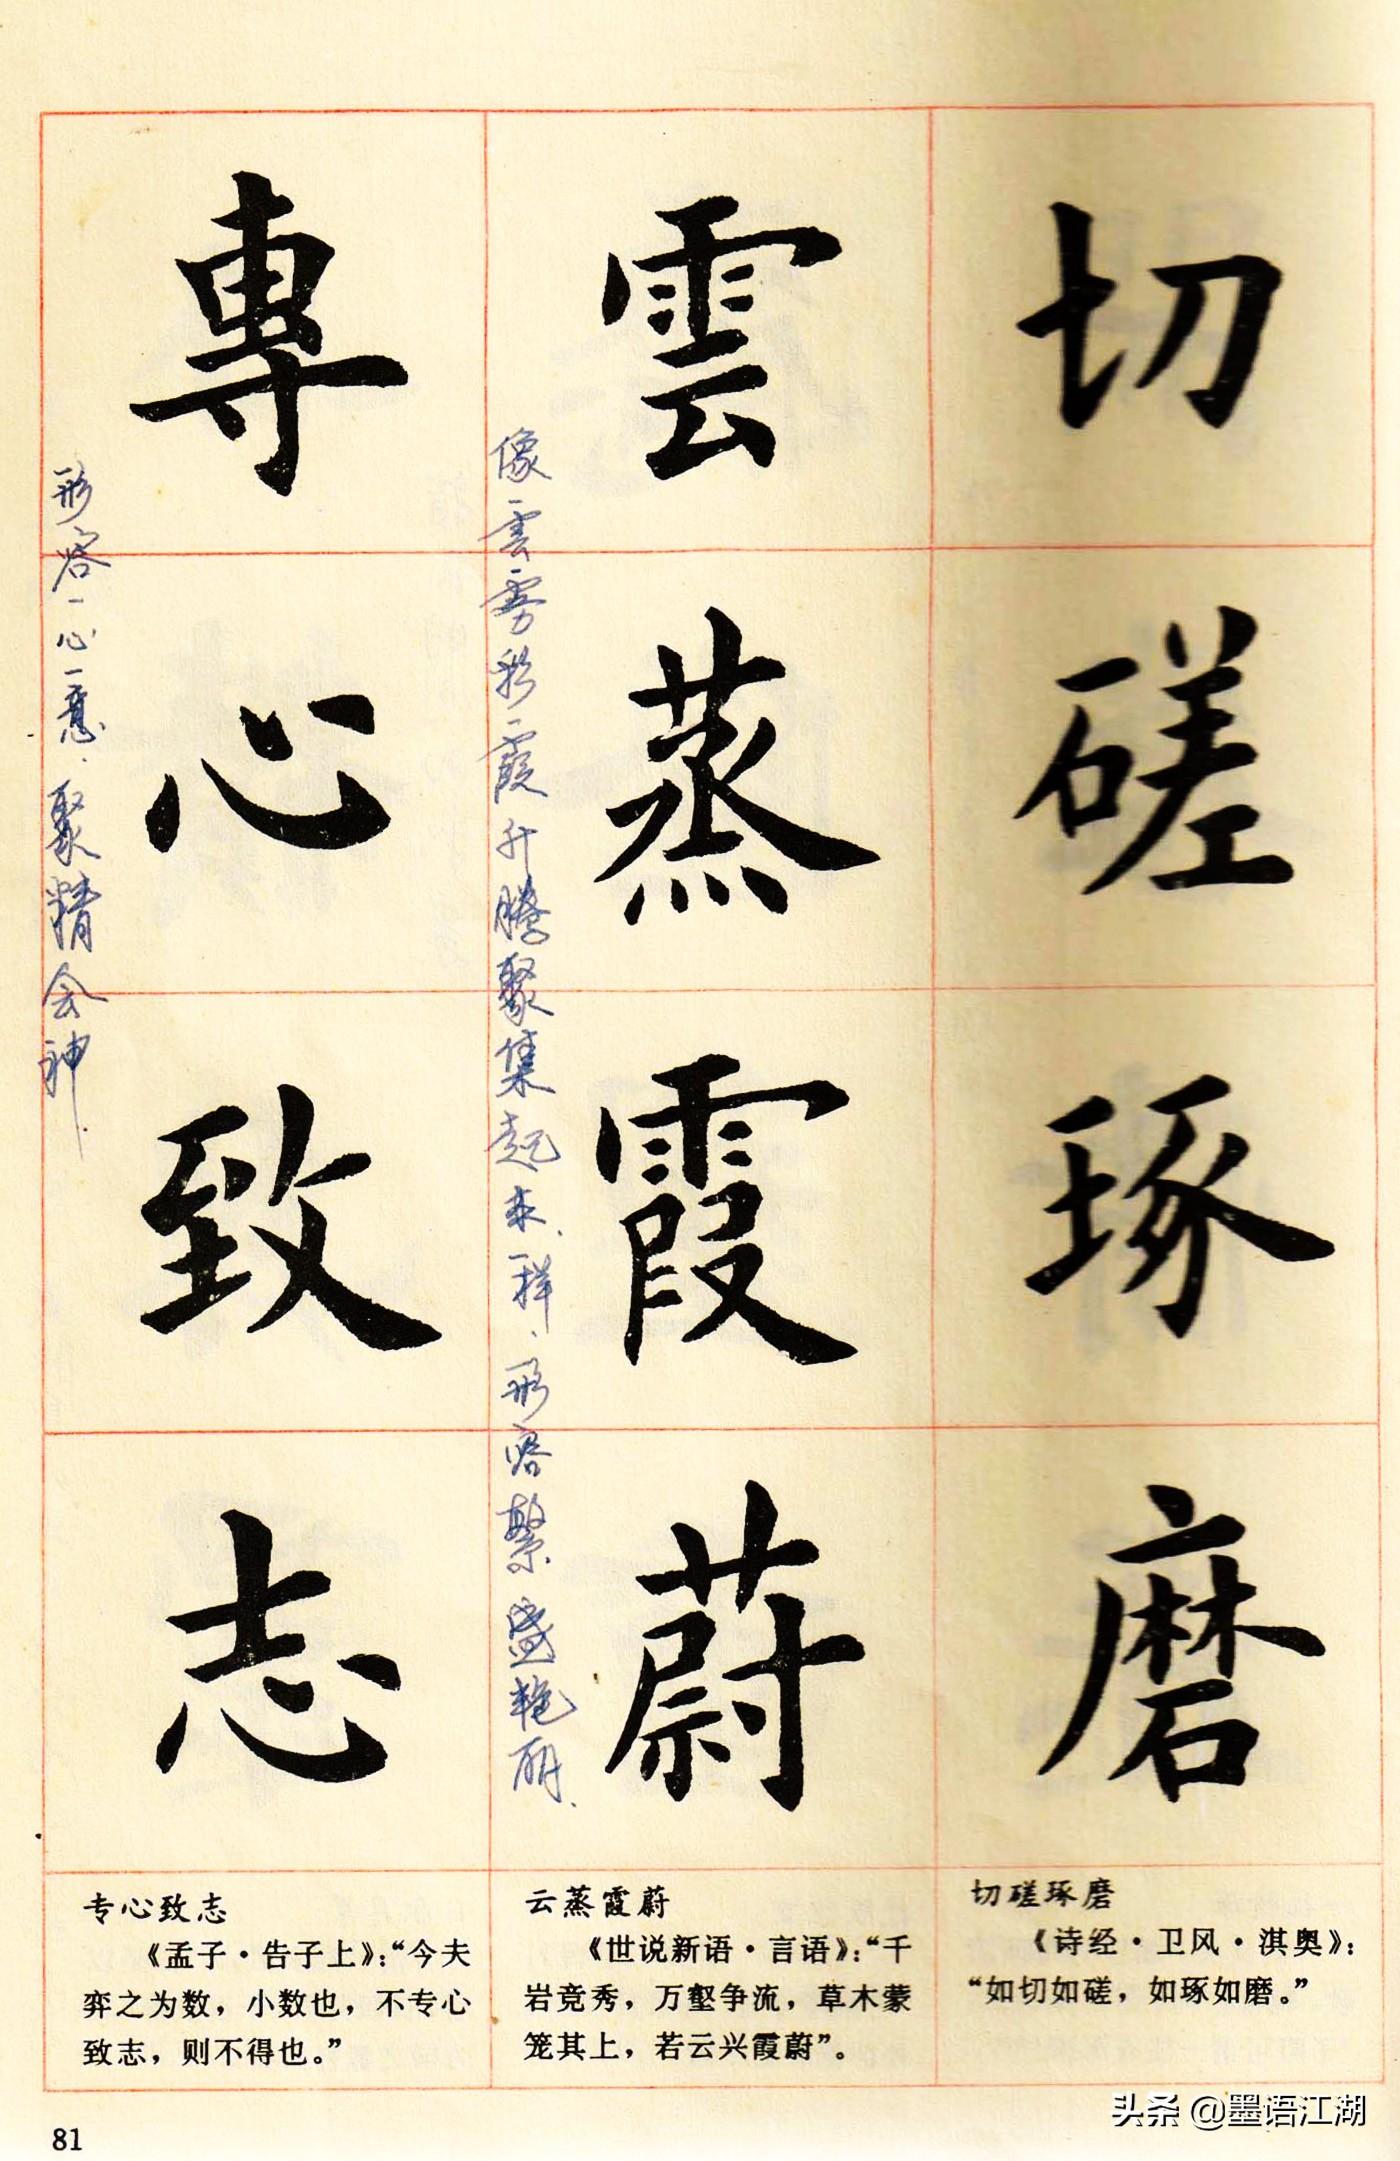 切磋琢磨
雲蒸霞蔚
像雲雾彩霞升腾聚集起来一样，形容繁盛艳丽.
專心致志
形容一心一意，聚精会神.
切磋琢磨
《诗经·卫风·淇奥》：
“如切如磋，如琢如磨。”
云蒸霞蔚
《世说新语·言语》：“千
岩竞秀，万壑争流，草木蒙
笼其上，若云兴霞蔚”。
专心致志
《孟子·告子上》：“今夫
弈之为数，小数也，不专心
致志，则不得也。”
81
头条 @墨语江湖